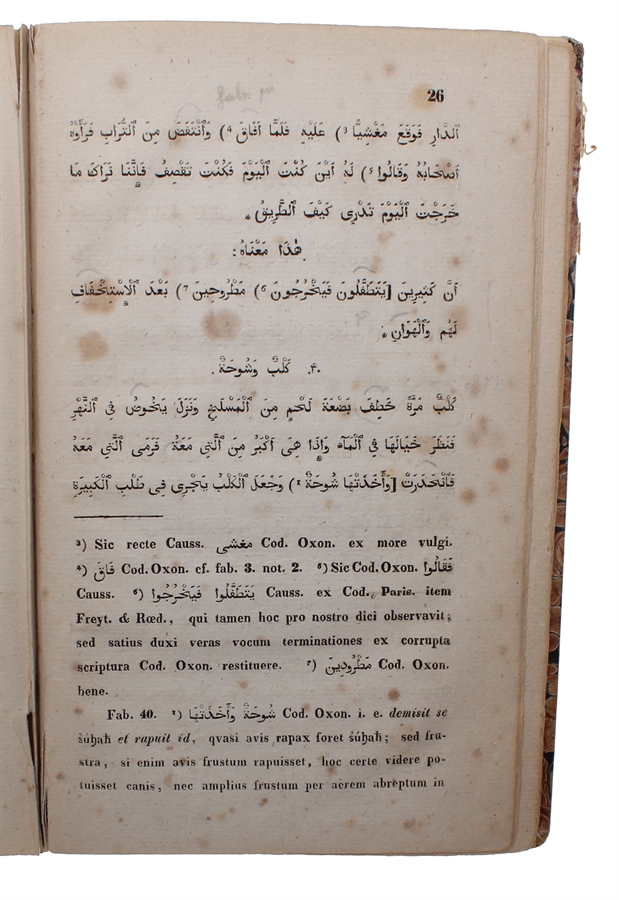 26
ٱلدَّارِ فَوَقَعَ مَغْشِيًّا ³) عَلَيْهِ فَلَمَّا أَفَاقَ ⁴) وَٱنْتَفَضَ مِنَ ٱلتُّرَابِ فَرَأَوْهُ
أَصْحَابُهُ وَقَالُوا ⁵) لَهُ أَيْنَ كُنْتَ ٱلْيَوْمَ فَكُنْتَ تَقْصِفُ فَإِنَّنَا نَرَاكَ مَا
خَرَجْتَ ٱلْيَوْمَ تَدْرِى كَيْفَ ٱلطَّرِيقُ
هٰذَا مَعْنَاهُ :
أَنَّ كَثِيرِينَ [يَتَطَفَّلُونَ فَيَخْرُجُونَ ⁶) مَطْرُوحِينَ ⁷) بَعْدَ ٱلْإِسْتِخْفَافِ
لَهُم وَٱلْهَوَانِ
۴۰. كَلْبٌ وَشُوحَةٌ .
كَلْبٌ مَرَّةً خَطِفَ بَضْعَةَ لَحْمٍ مِنَ ٱلْمَسْلَخِ وَنَزَلَ يَخُوضُ فِى ٱلنَّهْرِ
فَنَظَرَ خَيَالَهَا فِى ٱلْمَآءِ وَإِذَا هِىَ أَكْبَرُ مِنَ ٱلَّتِى مَعَهُ فَرَمَى ٱلَّتِى مَعَهُ
فَٱنْحَدَرَتْ [وَأَخَذَتْهَا شُوحَةٌ ¹) وَجَعَلَ ٱلْكَلْبُ يَجْرِى فِى طَلَبِ ٱلْكَبِيرَةِ
³) Sic recte Causs. مغشى Cod. Oxon. ex more vulgi.
⁴) فَاقَ Cod. Oxon. cf. fab. 3. not. 2. ⁵) Sic Cod. Oxon. فَقَالُوا
Causs. ⁶) يَتَطَفَّلُوا فَيَخْرُجُوا Causs. ex Cod. Paris. item
Freyt. & Rœd., qui tamen hoc pro nostro dici observavit;
sed satius duxi veras vocum terminationes ex corrupta
scriptura Cod. Oxon. restituere. ⁷) مَطْرُودِينَ Cod. Oxon.
bene.
Fab. 40. ¹) شُوحَةٌ وَأَخَذَتْهَا Cod. Oxon. i. e. demisit se
šúḥaħ et rapuit id, qvasi avis rapax foret šúḥaħ; sed fru-
stra, si enim avis frustum rapuisset, hoc certe videre po-
tuisset canis, nec amplius frustum per aërem abreptum in